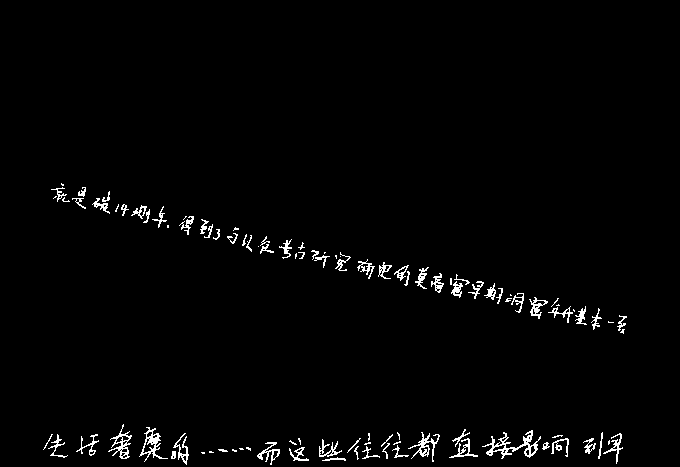 就是碳14测年,得到了与以往考古研究确定的莫高窟早期洞窟年代基本一致
生活奢糜的……而这些往往都直接影响到早